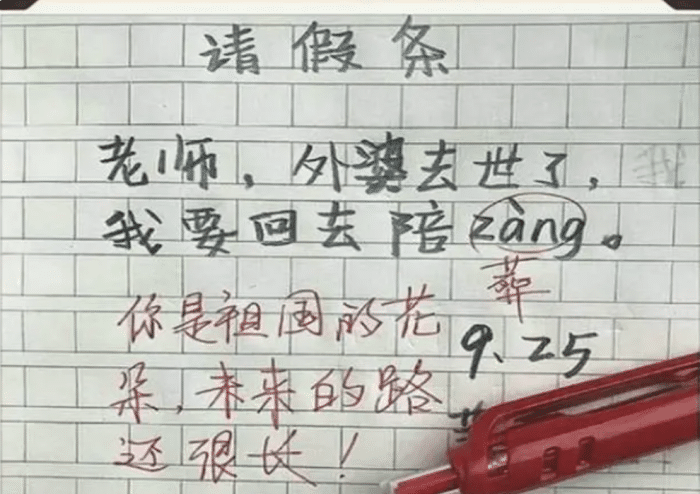 请假条
老师，外婆去世了，
我要回去陪zàng。
葬
9.25
你是祖国的花
朵，未来的路
还很长！